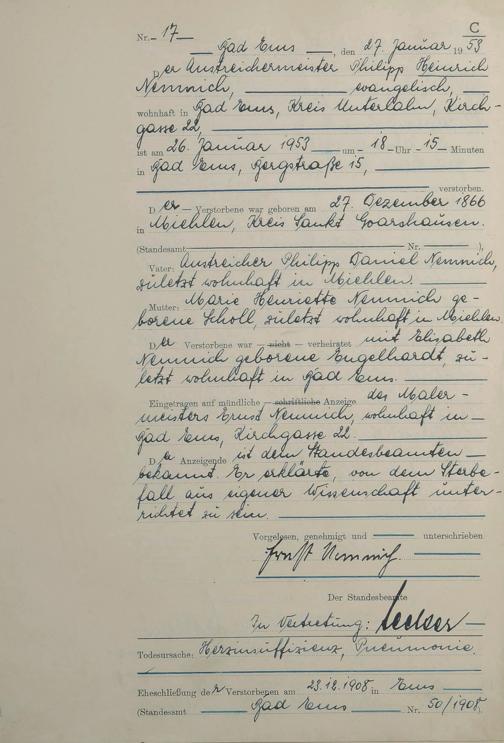 C
Nr. 17
Bad Ems, den 27. Januar 1953
Der Anstreichermeister Philipp Heinrich
Nemnich, evangelisch,
wohnhaft in Bad Ems, Kreis Unterlahn, Kirch-
gasse 22,
ist am 26. Januar 1953 um 18 Uhr 15 Minuten
in Bad Ems, Bergstraße 15,
verstorben.
Der Verstorbene war geboren am 27. Dezember 1866
in Miehlen, Kreis Sankt Goarshausen.
(Standesamt Nr. ),
Vater: Anstreicher Philipp Daniel Nemnich,
zuletzt wohnhaft in Miehlen.
Mutter: Marie Henriette Nemnich ge-
borene Scholl, zuletzt wohnhaft in Miehlen
Der Verstorbene war – nicht – verheiratet mit Elisabeth
Nemnich geborene Engelhardt, zu-
letzt wohnhaft in Bad Ems.
Eingetragen auf mündliche – schriftliche Anzeige des Maler-
meisters Ernst Nemnich, wohnhaft in
Bad Ems, Kirchgasse 22.
Der Anzeigende ist dem Standesbeamten
bekannt. Er erklärte, von dem Sterbe-
fall aus eigener Wissenschaft unter-
richtet zu sein.
Vorgelesen, genehmigt und unterschrieben
Ernst Nemnich.
Der Standesbeamte
In Vertretung:
Todesursache: Herzinsuffizienz, Pneumonie.
Eheschließung der Verstorbenen am 23.12.1908 in Ems
(Standesamt Bad Ems Nr. 50/1908)